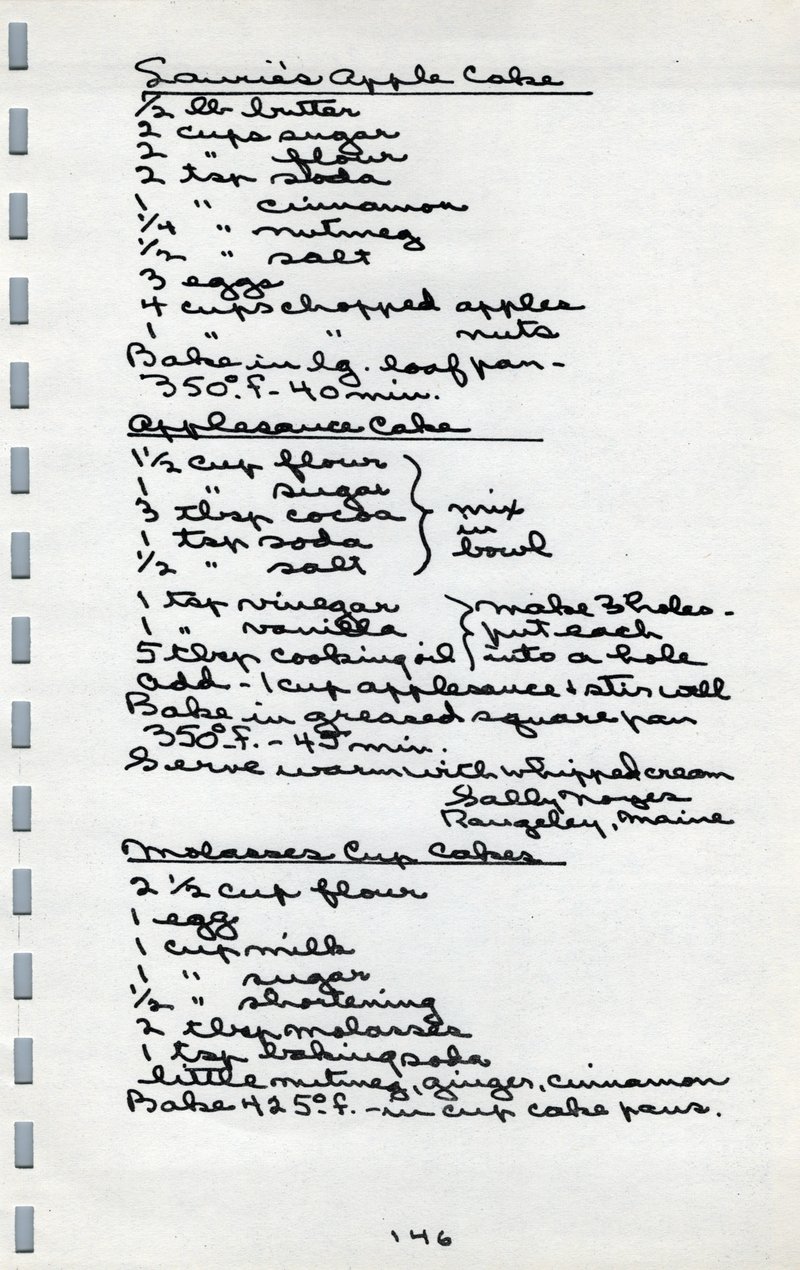 Laurie's Apple Cake
1/2 lb butter
2 cups sugar
2 " flour
2 tsp soda
1 " cinnamon
1/4 " nutmeg
1/2 " salt
3 eggs
4 cups chopped apples
1 " " nuts
Bake in lg. loaf pan -
350°.f - 40 min.
Applesauce Cake
1 1/2 cup flour
1 " sugar
3 tbsp cocoa
1 tsp soda
1/2 " salt
mix
in
bowl
1 tsp vinegar
1 " vanilla
5 tbsp cooking oil
make 3 holes -
put each
into a hole
add - 1 cup applesauce & stir well
Bake in greased square pan
350°.f. - 45 min.
Serve warm with whipped cream
Sally Noyes
Rangeley, Maine
Molasses Cup Cakes
2 1/2 cup flour
1 egg
1 cup milk
1 " sugar
1/2 " shortening
2 tbsp molasses
1 tsp baking soda
little nutmeg, ginger, cinnamon
Bake 425°.f. - in cup cake pans.
146